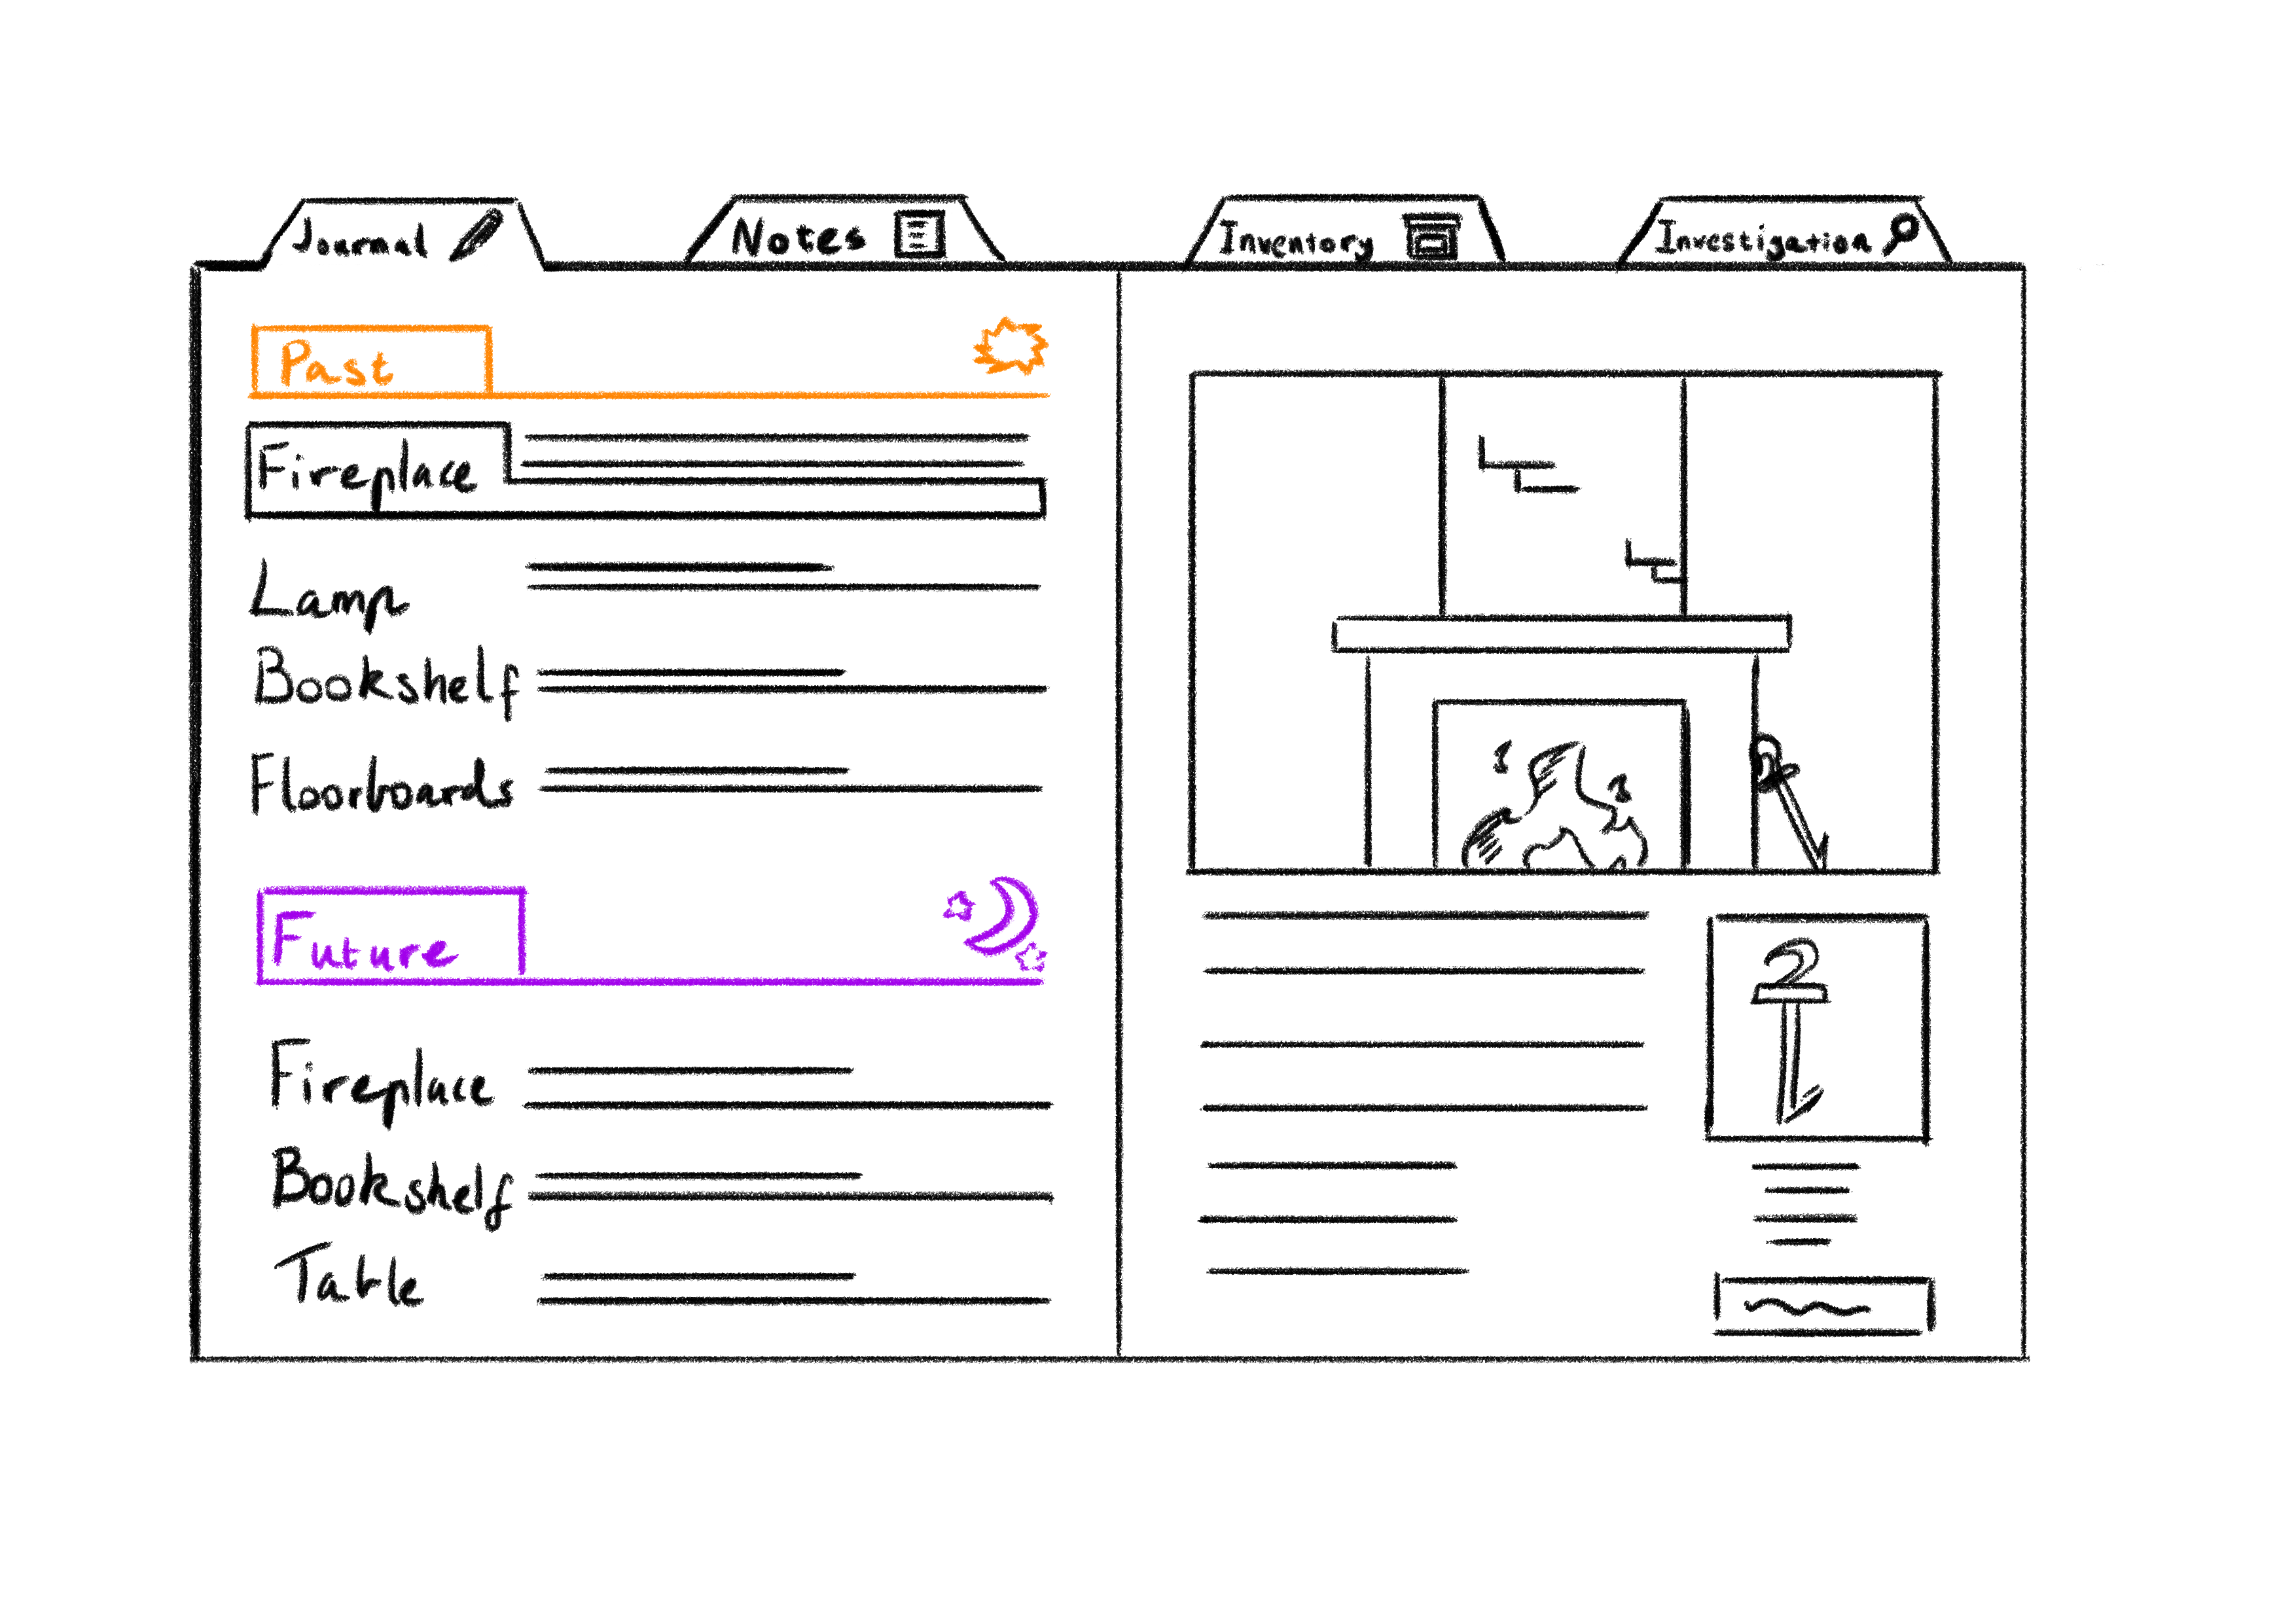 Journal
Notes
Inventory
Investigation
Past
Fireplace
Lamp
Bookshelf
Floorboards
Future
Fireplace
Bookshelf
Table